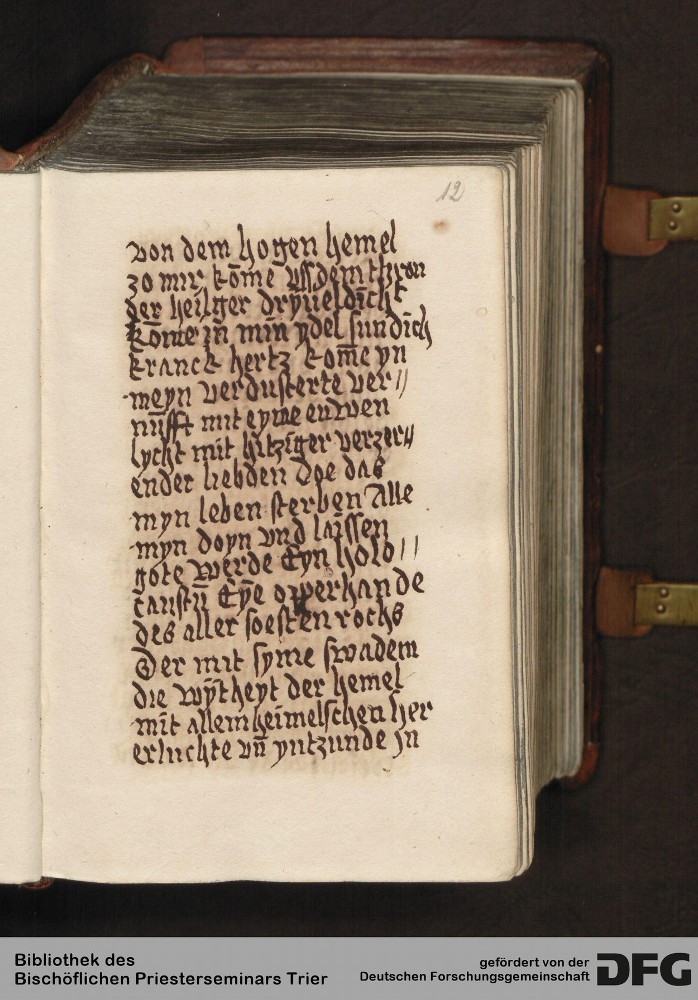 12
von dem hogen hemel
zo mir kōme vssdem thron
der heilger dryueldicht
kōme in min ydel sundich
kranck hertz kom̄e yn
meyn verdusterte ver//
nūfft mit eyme euwen
lycht mit hitziger verzer//
ender liebden Doe das
myn leben sterben Alle
myn doyn vnd laissen
gote werde Eyn holo//
caustū Eȳe offerhande
des aller soesten rochs
Der mit syme swadem
die wytheyt der hemel
mit allem heimelschen her
erluchte vn̄ yntzunde Jn
Bibliothek des
Bischöflichen Priesterseminars Trier
gefördert von der
Deutschen Forschungsgemeinschaft
DFG